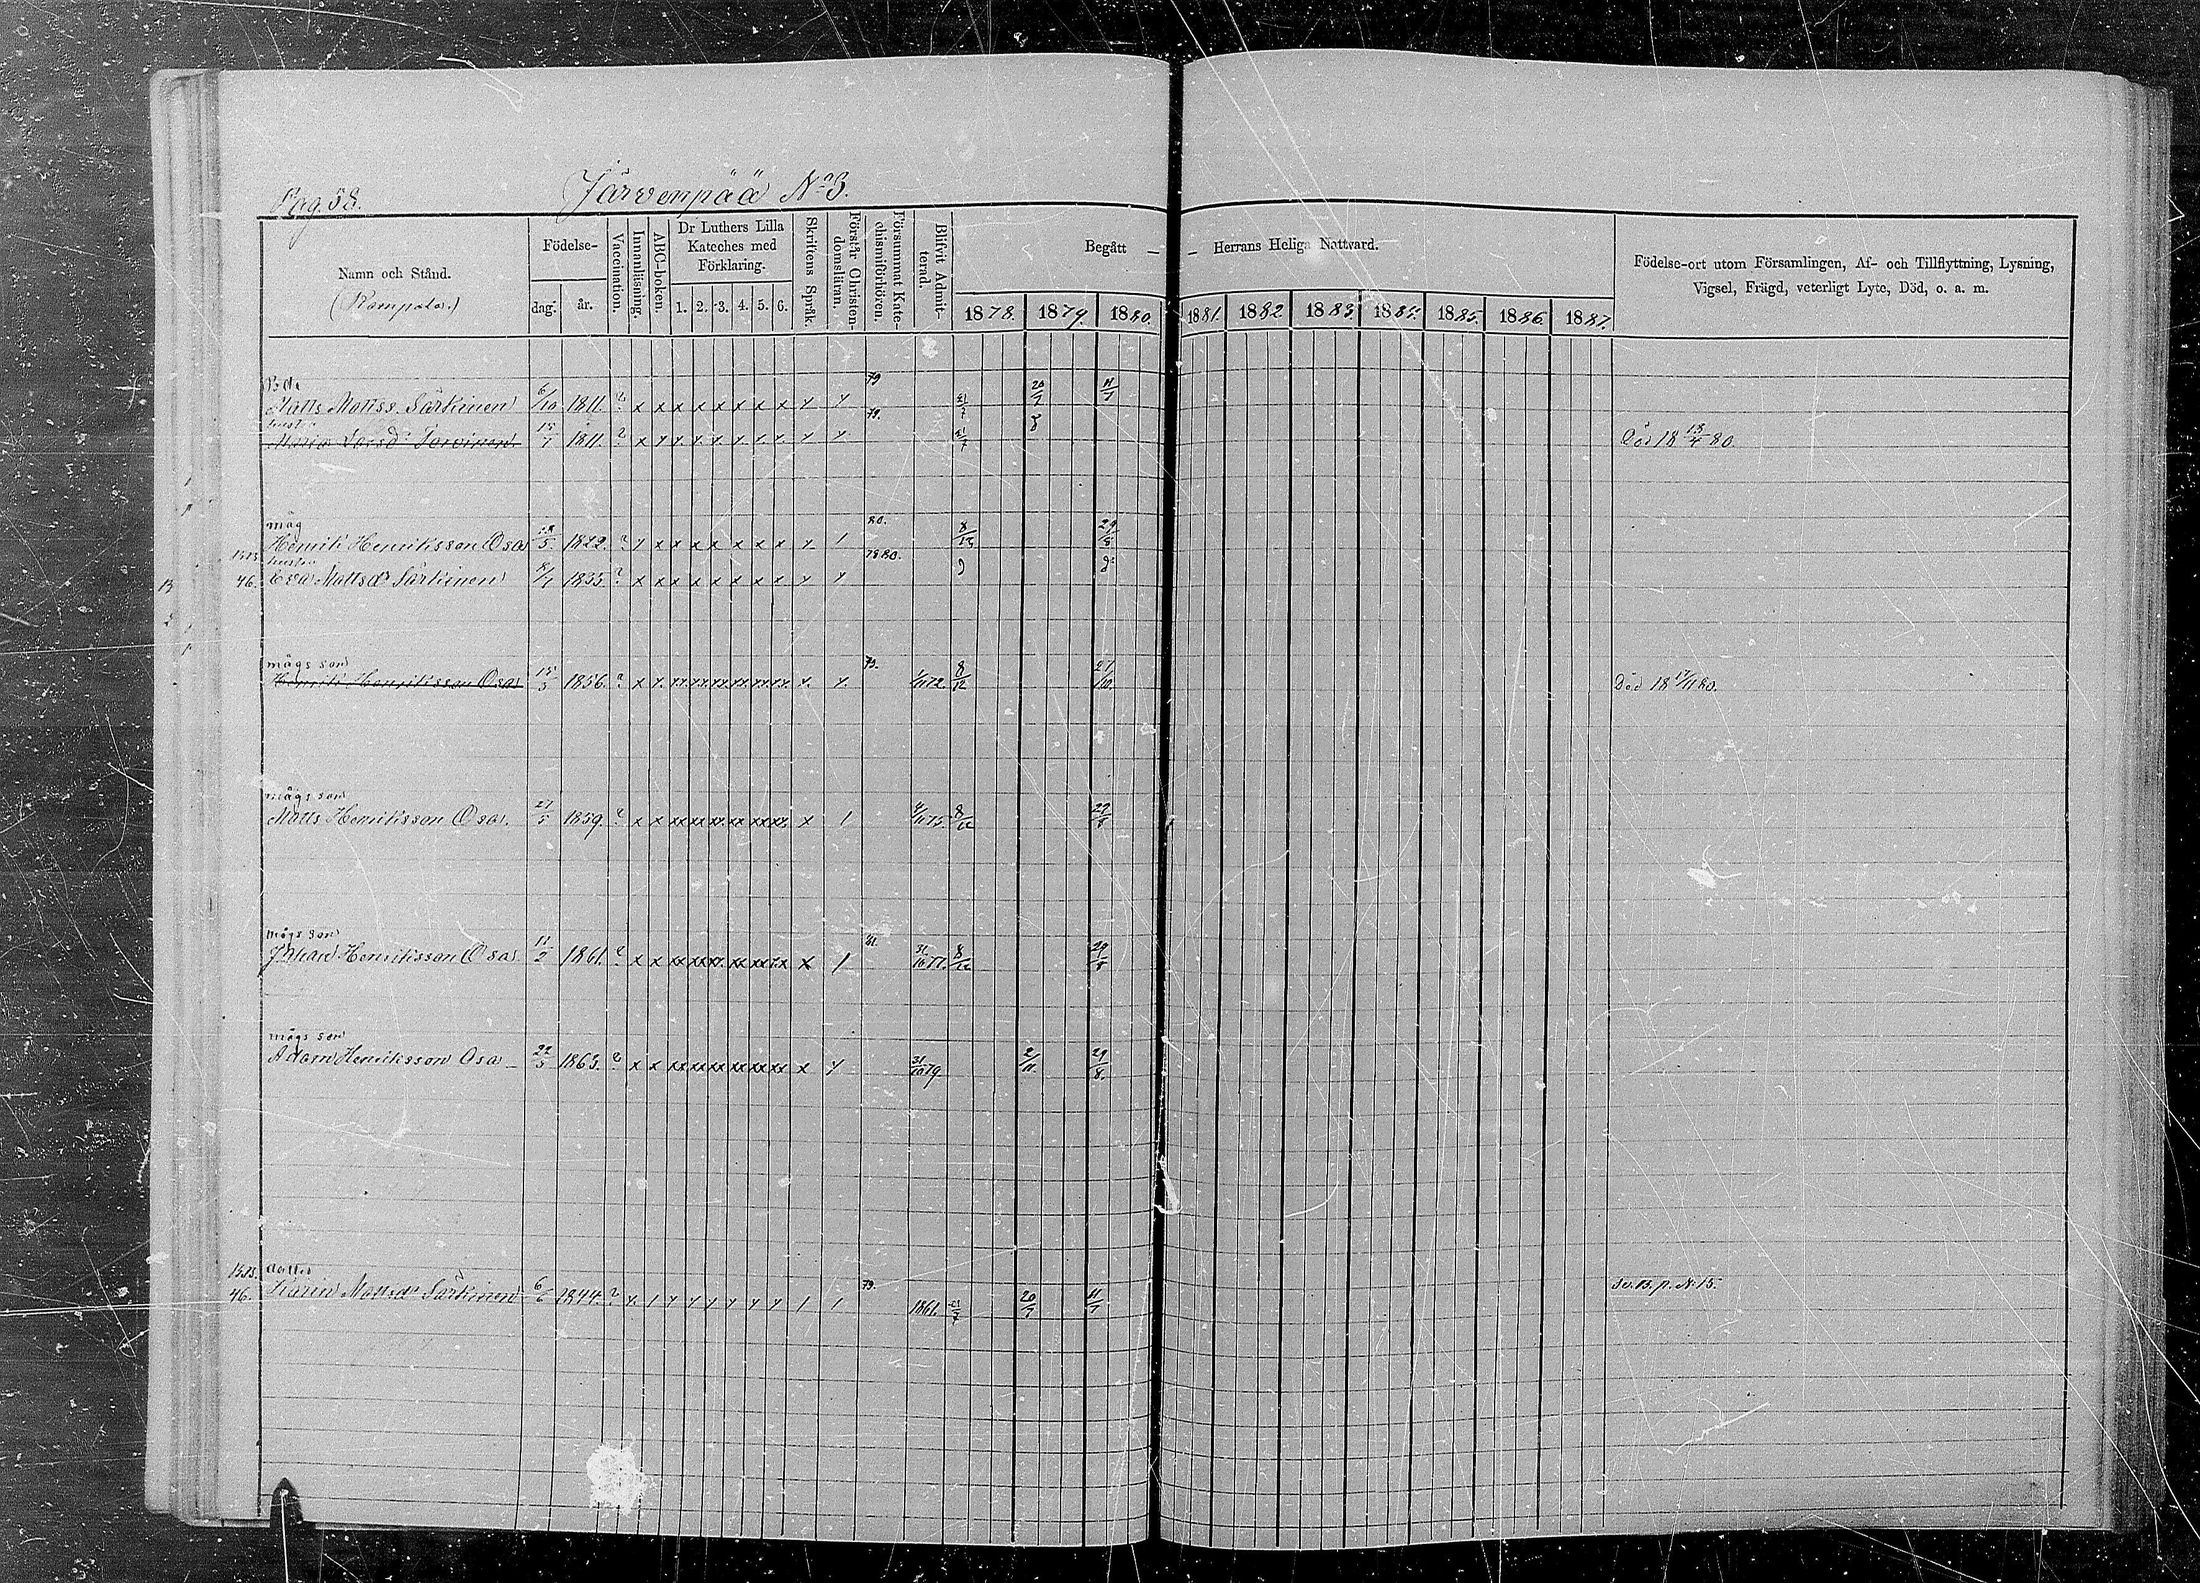 Pag. 58.
Järvenpää No 3.
Namn och Stånd.
(Rompala.)
Födelse-
dag. år.
Vaccination.
Innanläsning.
ABC-boken.
Dr Luthers Lilla
Kateches med
Förklaring.
1. 2. 3. 4. 5. 6.
Skriftens Språk.
Förstår Christen-
domsläran.
Försummat Kate-
chismiförhören.
Blifvit Admit-
terad.
Begått — — Herrans Heliga Nattvard.
1878. 1879. 1880. 1881. 1882 1883. 1884. 1885. 1886. 1887.
Födelse-ort utom Församlingen, Af- och Tillflyttning, Lysning,
Vigsel, Frägd, veterligt Lyte, Död, o. a. m.
Bd. 79
Matts Mattss. Särkinen 6/10 1811. ? x x x x x x x x x x 21/7 20/7 11/7
hustru 79.
Maria Larsdr 15/7 1811. ? x x x x x x x x x x 21/7 Död 18 18/4 80.
måg 80.
Henrik Henriksson Osa 28/5 1822. ? x x x x x x x x x 1 8/12 29/8
1313. hustru 7880.
46. Eva Mattsdr Särkinen 8/1 1835. ? x x x x x x x x x x
mågs son 79.
Henrik Henriksson Osa 15/5 1856. ? x x xx xx xx xx xx xx x x 1/11 72. 8/12 27/10. Död 18 17/11 80.
mågs son
Matts Henriksson Osa. 27/5 1859. ? x x xx xx xx xx xx xx x 1 4/11 75. 8/12 29/8
mågs son
Johan Henriksson Osa. 11/2 1861. ? x x xx xx xx xx xx xx x 1 31/10 77. 8/12 29/8
mågs son
Adam Henriksson Osa 22/5 1863. ? x x xx xx xx xx xx xx x x 31/10 79. 2/11. 29/8.
1313. dotter 79.
46. Karin Mattsdr Särkinen 6/6 1844. ? x 1 x x x x x x 1 1 1861. 21/7 20/7 11/7 se B. p. N:15.